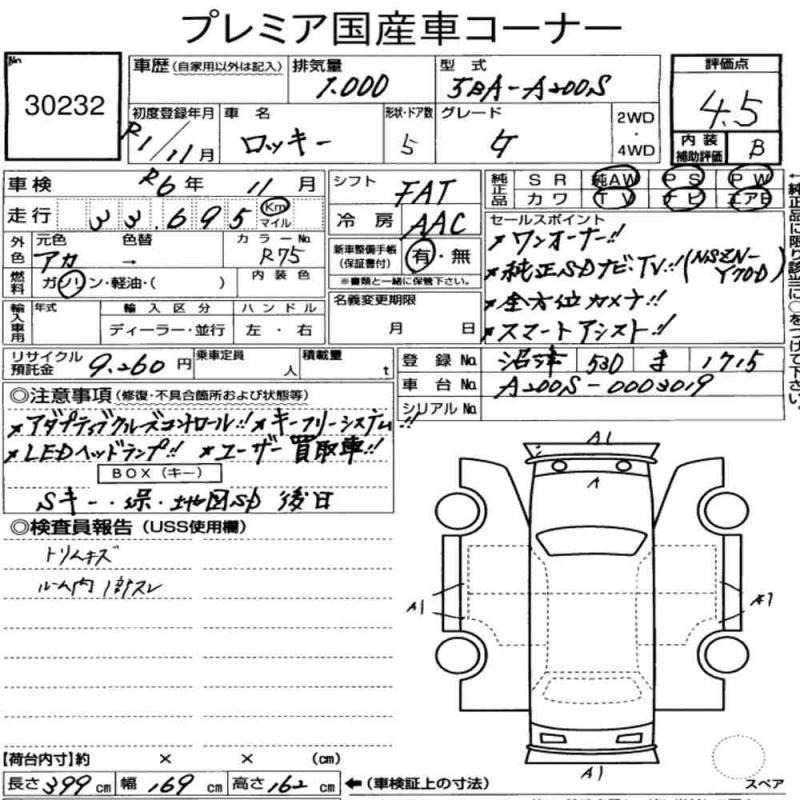 プレミア国産車コーナー
No
30232
車歴 (自家用以外は記入)
排気量
1.000
型式
5BA-A200S
評価点
4.5
内装補助評価
B
初度登録年月
R1/11月
車名
ロッキー
形状・ドア数
5
グレード
G
2WD・4WD
車検
R6年 11月
シフト
FAT
純正品 SR 純AW PS PW
カワ TV ナビ エアB
走行
33.695 Km マイル
冷房
AAC
外色 元色 色替 カラーNo.
アカ → R75
新車整備手帳(保証書付) 有・無
※書類と一緒に保管下さい。
燃料 ガソリン・軽油・( ) 内装色
輸入車用 年式 輸入区分 ハンドル
ディーラー・並行 左・右
名義変更期限
月 日
セールスポイント
×ワンオーナー!!
×純正SDナビTV!!(NSZN-Y70D)
×全方位カメラ!!
×スマートアシスト!!
リサイクル預託金 9.260円
乗車定員 人
積載量 t
登録No. 沼津 530 ま 1715
車台No. A200S-0003019
シリアルNo.
◎注意事項(修復・不具合箇所および状態等)
×アダプティブクルーズコントロール!! ×キーフリーシステム!!
×LEDヘッドランプ!! ×ユーザー買取車!!
BOX(キー)
Sキー・保・地図SD 後日
◎検査員報告(USS使用欄)
トリムキズ
ルーム内1部スレ
A1
A
A1
A1
A1
スペア
【荷台内寸】約 × × (cm)
長さ 399cm 幅 169cm 高さ 162cm ←(車検証上の寸法)